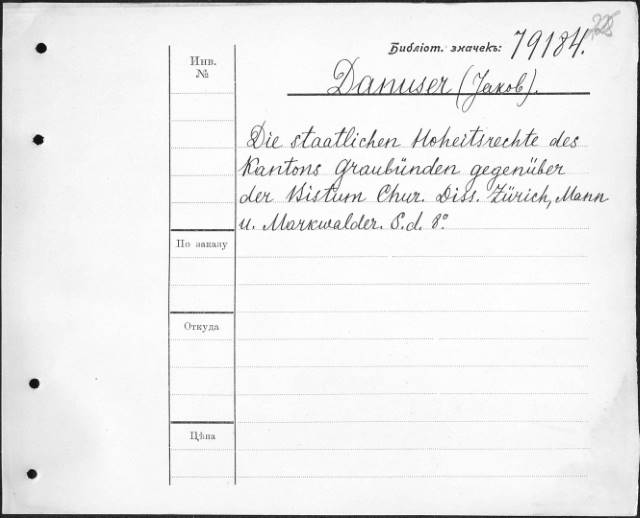 225
Библіот. значекъ: 79184.
Инв.
№
Danuser (Jakob).
Die staatlichen Hoheitsrechte des
Kantons Graubünden gegenüber
der Bistum Chur. Diss. Zürich, Mann
u. Markwalder. S.d. 8º
По заказу
Откуда
Цѣна